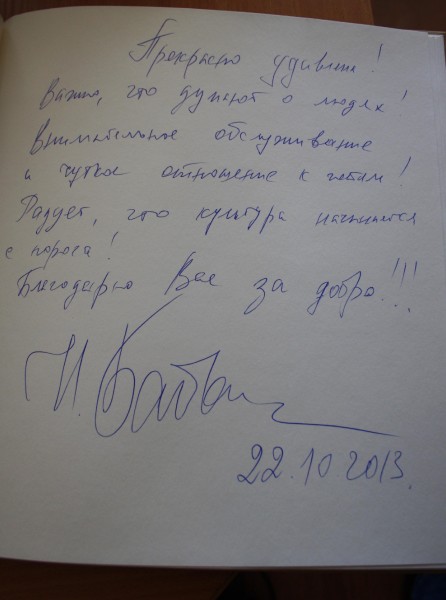 Прекрасно удивлена!
Важно, что думают о людях!
Внимательное обслуживание
и чуткое отношение к гостям!
Радует, что культура начинается
с порога!
Благодарю Вас за добро!!!
22.10 2013.